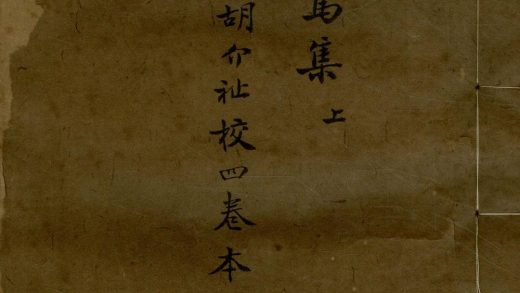 集上
胡介祉校四卷本